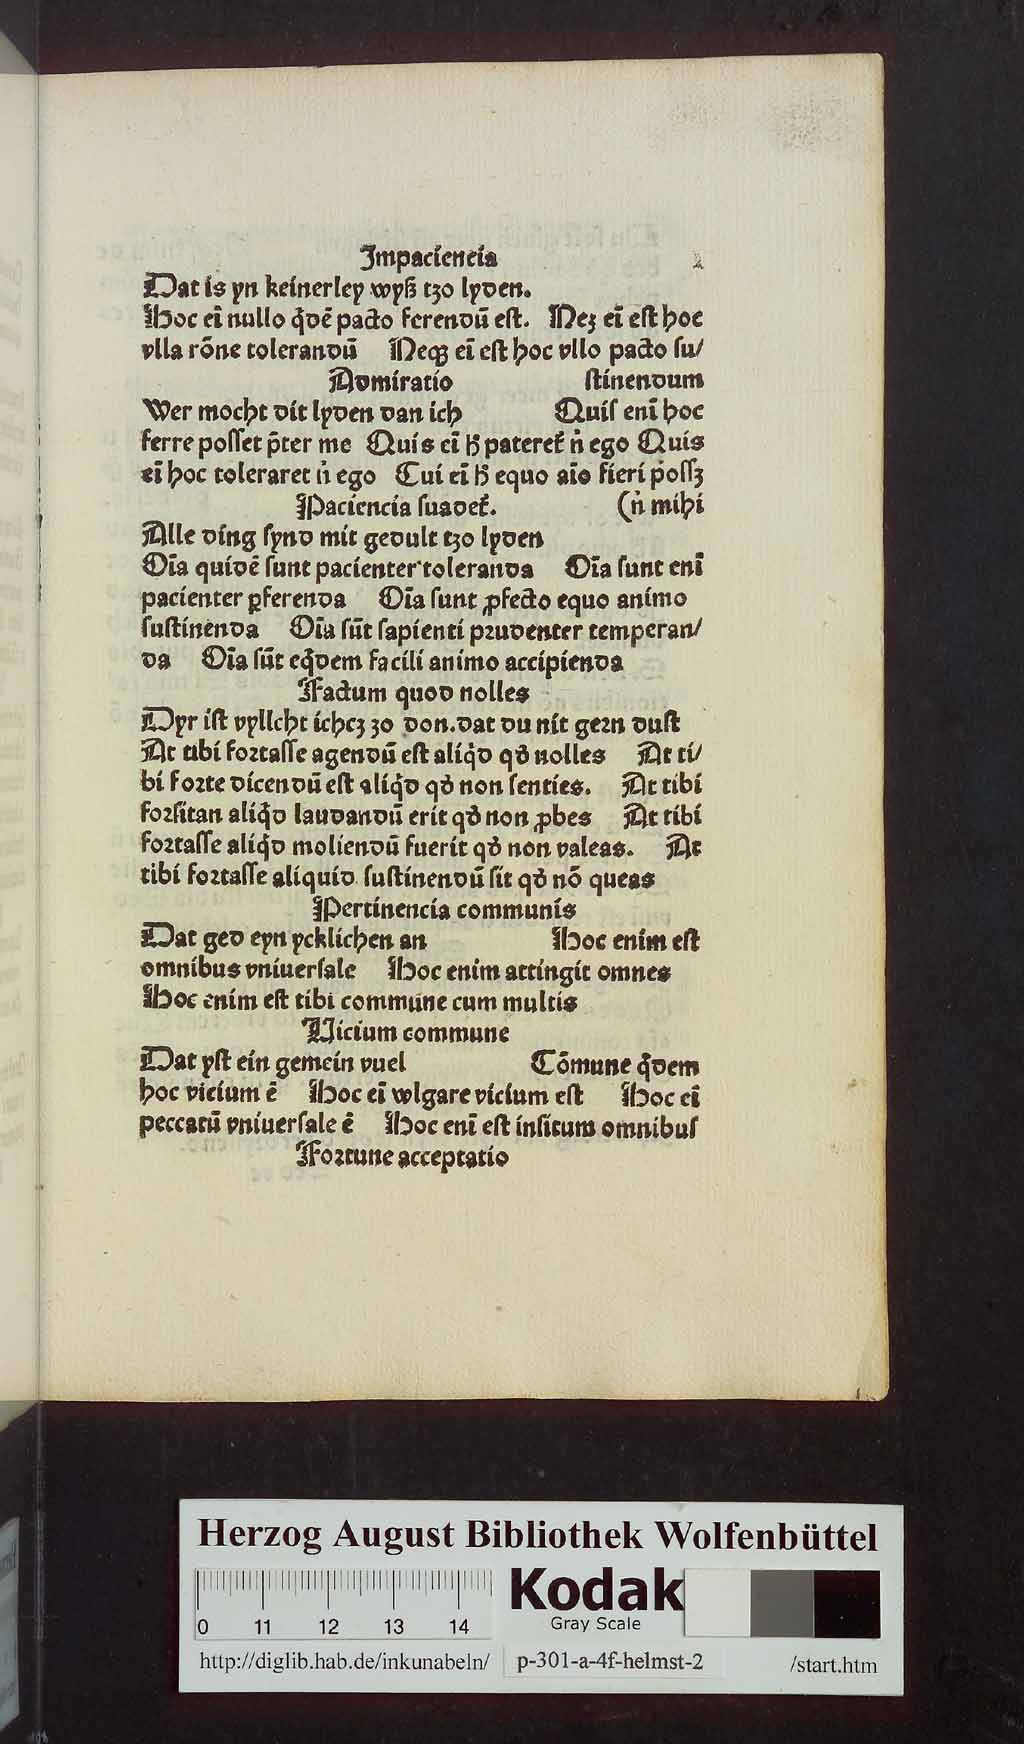 Impaciencia
Dat is yn keinerley wyß tzo lyden.
Hoc eī nullo q̇dē pacto ferendū est. Neꝫ eī est hoc
vlla rōne tolerandū Neqꝫ eī est hoc vllo pacto su/
Admiratio stinendum
Wer mocht dit lyden dan ich Quis enī hoc
ferre posset p̄ter me Quis eī hͦ pateret᷑ n̍ ego Quis
eī hoc toleraret n̍ ego Cui eī hͦ equo aīo fieri possꝫ
Paciencia suadet᷑. (n̍ mihi
Alle ding synd mit gedult tzo lyden
Oīa quidē sunt pacienter toleranda Oīa sunt enī
pacienter ꝑferenda Oīa sunt ꝓfecto equo animo
sustinenda Oīa sūt sapienti prudenter temperan/
da Oīa sūt eq̇dem facili animo accipienda
Factum quod nolles
Dyr ist vyllcht ichcꝫ zo don.dat du nit gern dust
At tibi fortasse agendū est aliq̇d qđ nolles At ti/
bi forte dicendū est aliq̇d qđ non senties. At tibi
forsitan aliq̇d laudandū erit qđ non ꝓbes At tibi
fortasse aliq̇d moliendū fuerit qđ non valeas. At
tibi fortasse aliquid sustinendū sit qđ nō queas
Pertinencia communis
Dat ged eyn ycklichen an Hoc enim est
omnibus vniuersale Hoc enim attingit omnes
Hoc enim est tibi commune cum multis
Uicium commune
Dat yst ein gemein vuel Cōmune q̇dem
hoc vicium ē Hoc eī wlgare vicium est Hoc eī
peccatū vniuersale ē Hoc enī est insitum omnibus
Fortune acceptatio
Herzog August Bibliothek Wolfenbüttel
0 11 12 13 14
Kodak
Gray Scale
http://diglib.hab.de/inkunabeln/ p-301-a-4f-helmst-2 /start.htm